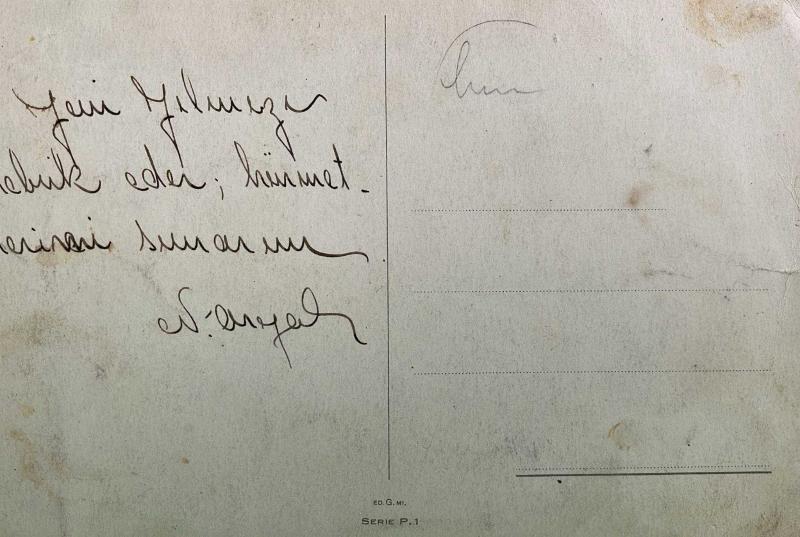 Yeni Yılınızı
tebrik eder; hürmet-
lerimi sunarım
ED. G. MI.
SERIE P.1